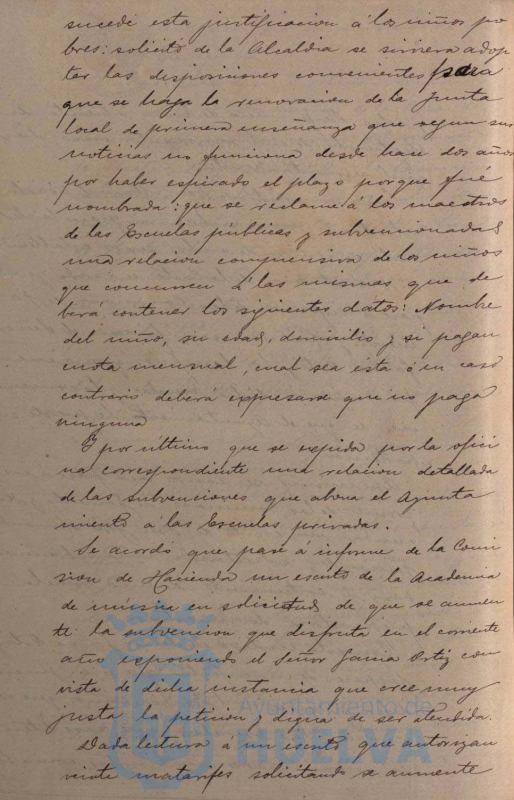 sucedi esta justificacion á los niños po
bres: solicitó de la Alcaldia se sirviera adop
tar las disposiciones convenientes para
que se haga la renovacion de la Junta
local de primera enseñanza que segun sus
noticias no funciona desde hace dos años
por haber espirado el plazo porque fué
nombrada: que se reclame á los maestros
de las Escuelas públicas y subvencionadas
una relacion comprensiva de los niños
que concurren á las mismas que de
berá contener los siguientes datos: Nombre
del niño, su edad, domicilio y si pagan
cuota mensual, cual sea esta ó en caso
contrario deberá expresarse que no paga
ninguna
Y por ultimo que se expida por la ofici
na correspondiente una relacion detallada
de las subvenciones que abona el Ayunta
miento á las Escuelas privadas.
Se acordó que pase á informe de la Comi
sion de Hacienda un escrito de la Academia
de música en solicitud de que se aumen
te la subvencion que disfruta en el corriente
año exponiendo el Señor Garcia Ortiz con
vista de dicha instancia que cree muy
justa la peticion y digna de ser atendida.
Dada lectura á un escrito que autorizan
veinte matarifes solicitando se aumente
Ayuntamiento de
HUELVA